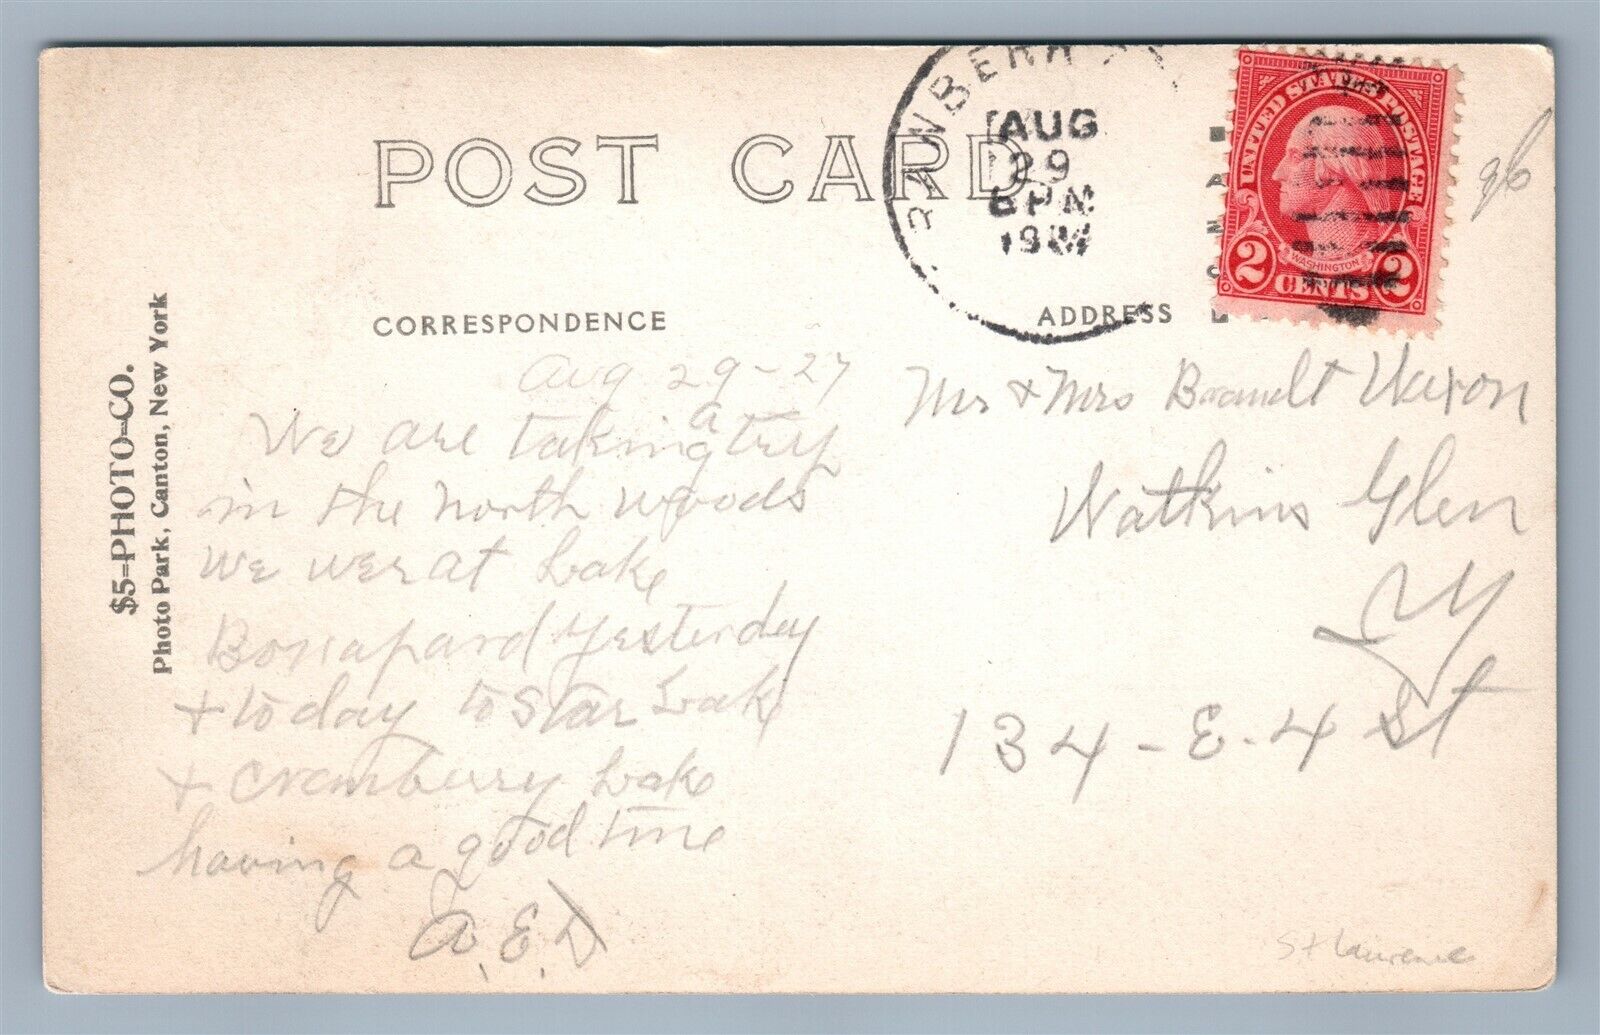 POST CARD
RANBERR
AUG
29
6 PM
192
UNITED STATES POSTAGE
WASHINGTON
2 CENTS 2
96
CORRESPONDENCE
ADDRESS
$5-PHOTO-CO.
Photo Park, Canton, New York
Aug 29-27
We are taking a trip
in the north woods
we wer at Lake
Bonapard yesterday
+ today to Star Lake
+ Cramberry Lake
having a good time
A.E.D
Mr & Mrs Brandt
Watkins Glen
NY
134-E-4 St
St Lawrence